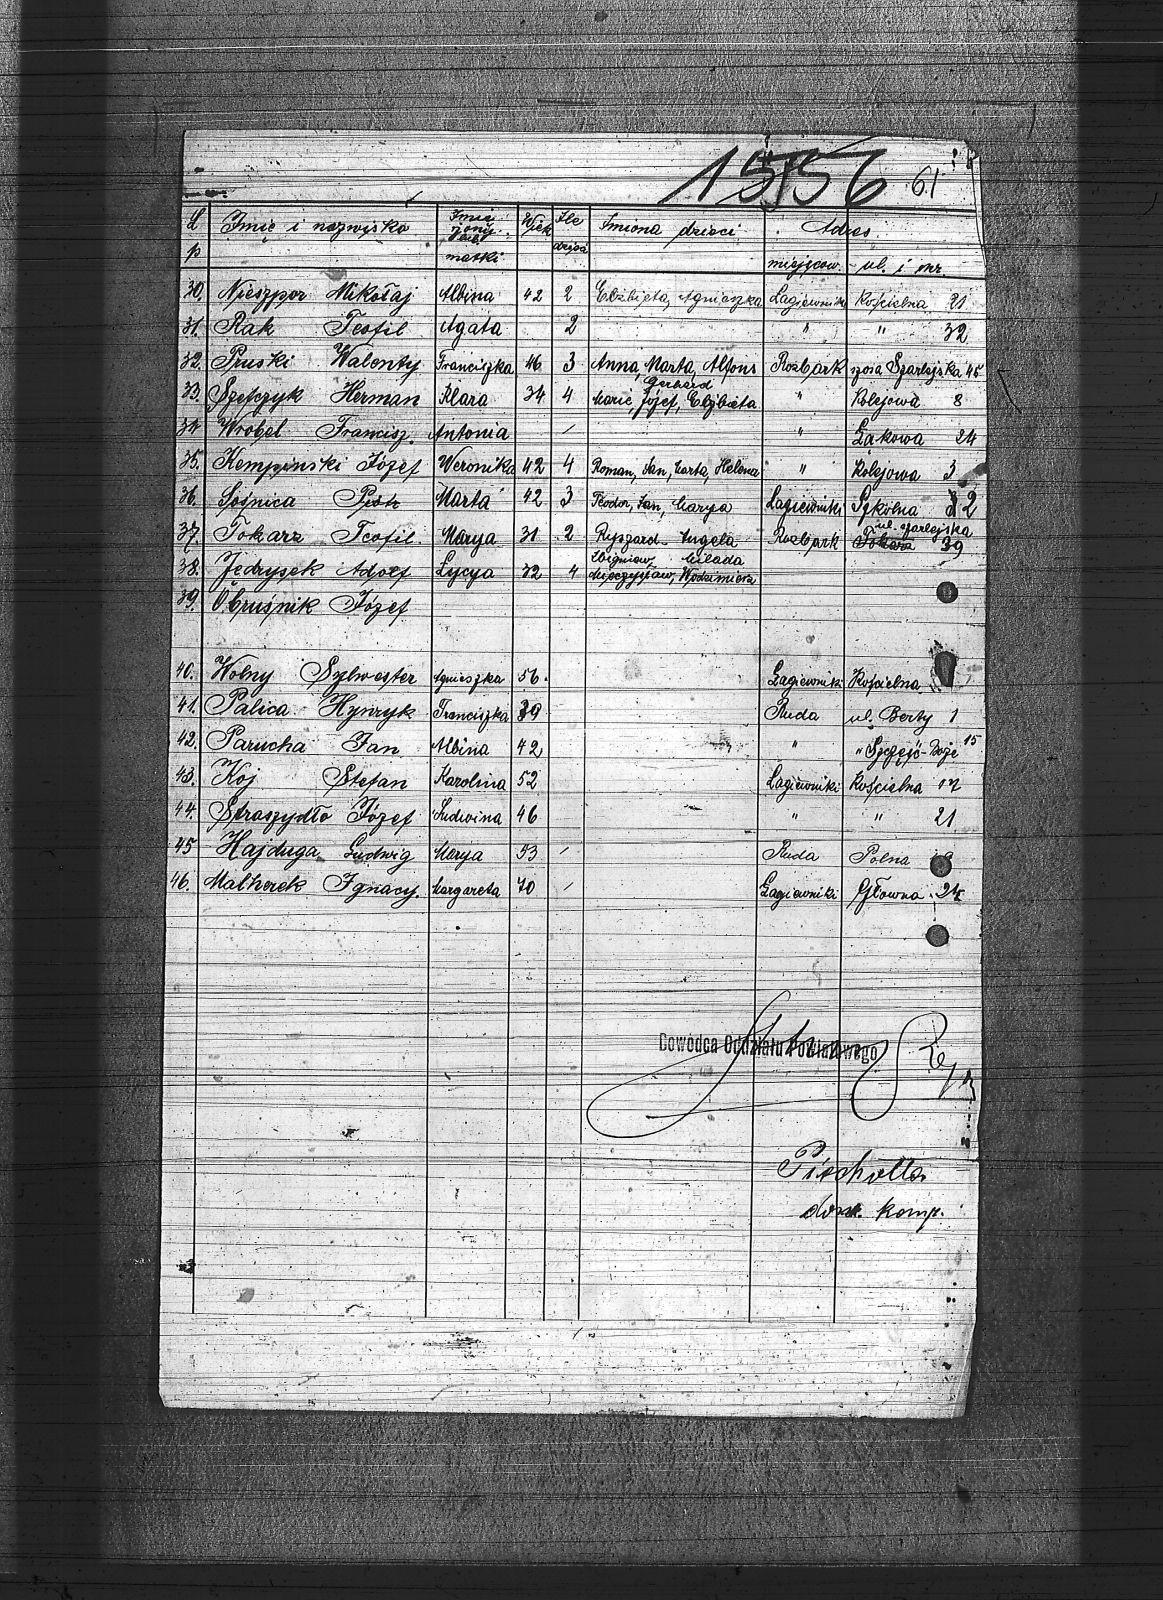 15156 61
L p Imię i nazwisko Imię żony lub matki Wiek Ile dzieci Imiona dzieci Adres
miejscow. ul. i nr
30. Nieszpor Mikołaj Albina 42 2 Elżbieta, Agnieszka Łagiewniki Kościelna 21
31. Rak Teofil Agata 2 " " 32
32. Pruski Walenty Franciszka 46 3 Anna, Marta, Alfons Rozbark szosa Szarlejska 45
33. Szefczyk Herman Klara 34 4 Marie, Józef, Elżbieta Gerhard " Kolejowa 8
34. Wrobel Francisz. Antonia / " Łąkowa 24
35. Kempiński Józef Weronika 42 4 Roman, Jan, Marta, Helena " Kolejowa 3
36. Sośnica Piotr Marta 42 3 Teodor, Jan, Marya Łagiewniki Szkolna 2
37. Tokarz Teofil Marya 31 2 Ryszard Angela Rozbark ul. Szarlejska 39
38. Jędrysek Adolf Lycya 32 4 Zbigniew, Milada Mieczysław, Włodzimierz
39. Obruśnik Józef
40. Wolny Sylwester Agnieszka 56. Łagiewniki Kościelna
41. Palica Hynryk Franciszka 39 Ruda ul. Berty 1
42. Parucha Jan Albina 42 " " Szczęść-Boże 15
43. Koj Stefan Karolina 52 Łagiewniki Kościelna 17
44. Straszydło Józef Ludwina 46 " " 21
45 Hajduga Ludwig Marya 53 / Ruda Polna
46. Malherek Ignacy. Margareta 70 / Łagiewniki Główna 24
Dowódca Oddziału Powiatowego
Piechotta
dow. komp.